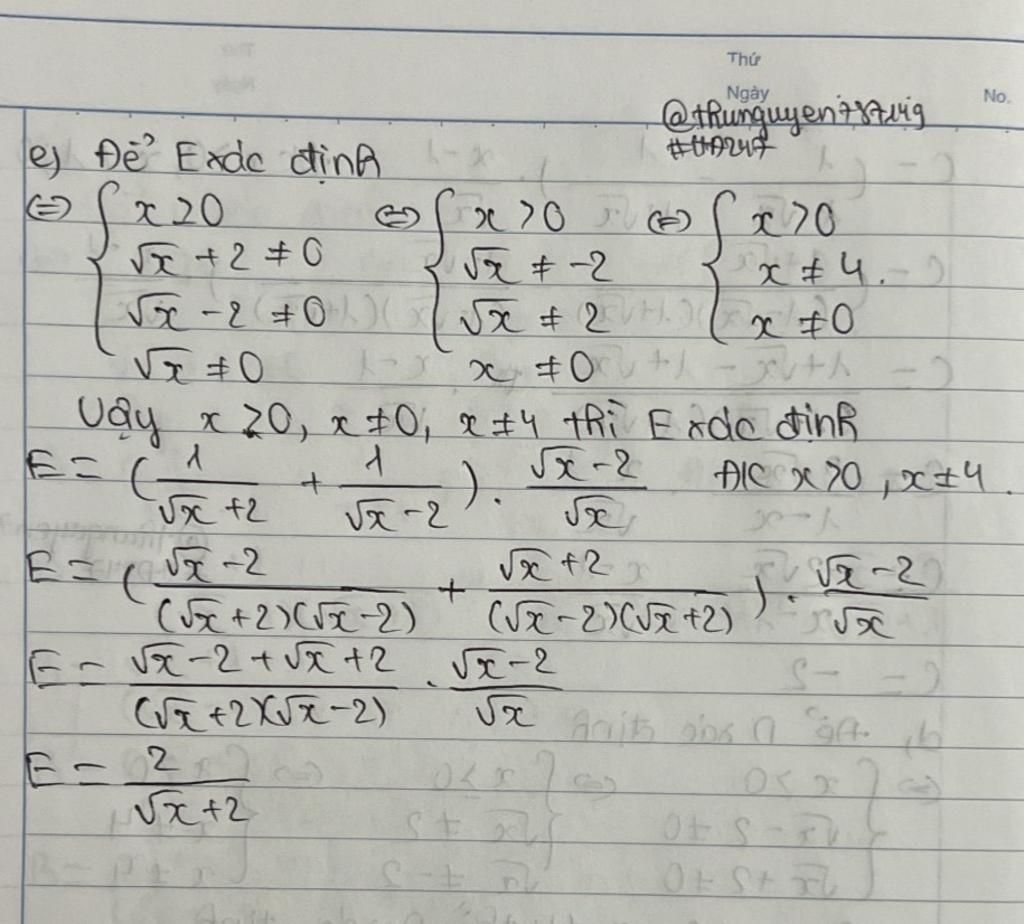 Thứ
Ngày
No.
@thunguyen78749
e) Để E xác định
⇔ { x ≥ 0 ⇔ { x > 0 ⇔ { x > 0
√x + 2 ≠ 0 √x ≠ -2 x ≠ 4.
√x - 2 ≠ 0 √x ≠ 2 x ≠ 0
√x ≠ 0 x ≠ 0
Vậy x ≥ 0, x ≠ 0, x ≠ 4 thì E xác định
E = (1/(√x + 2) + 1/(√x - 2)) . (√x - 2)/√x ĐK x > 0, x ≠ 4.
E = ((√x - 2)/((√x + 2)(√x - 2)) + (√x + 2)/((√x - 2)(√x + 2))) . (√x - 2)/√x
E = (√x - 2 + √x + 2)/((√x + 2)(√x - 2)) . (√x - 2)/√x
E = 2/(√x + 2)